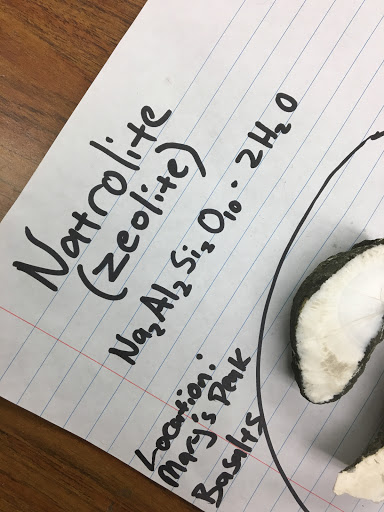 Natrolite
(zeolite)
Na₂Al₂Si₃O₁₀·2H₂O
Location:
Mary's Peak
Basalts